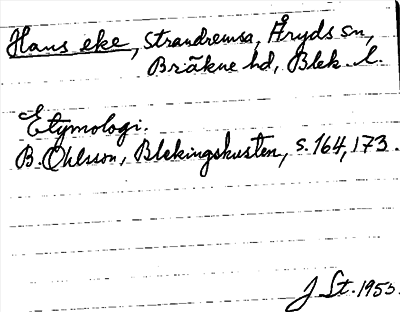 Hans eke, strandremsa, Åryds sn,
Bräkne hd, Blek. l.
Etymologi.
B. Ohlsson, Blekingskusten, s. 164, 173.
J St. 1953.